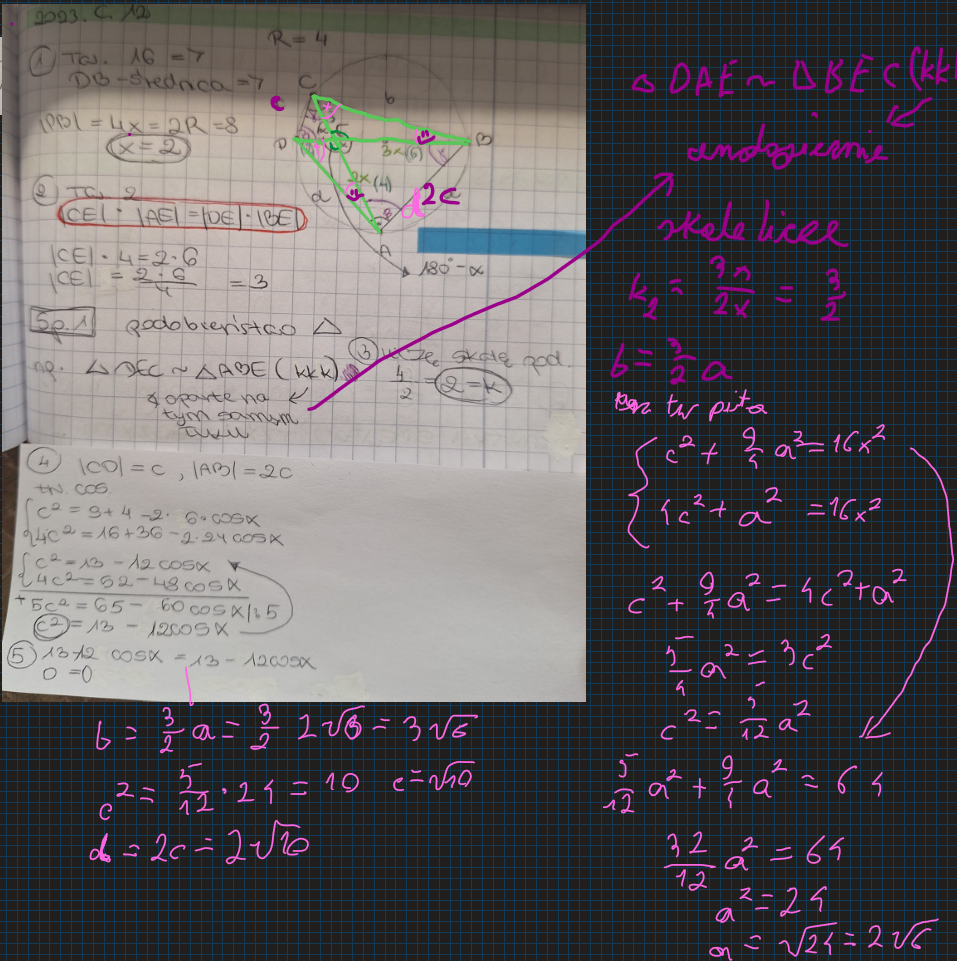 2023. C. 12
R = 4
① Tw. 16 =7
DB - średnica =7
|DB| = 4x = 2R = 8
x = 2
② Tw. 2
|CE| · |AE| = |DE| · |BE|
|CE| · 4 = 2 · 6
|CE| = 2·6/4 = 3
C
c
b
D
B
3x (6)
2x (4)
d
d 2c
A
180° - α
Sp. 1 podobieństwo △
np. △DEC ~ △ABE (kkk)
oparte na
tym samym
łuku
③ liczę skalę pod.
4/2 = 2 = k
④ |CD| = c, |AB| = 2c
tw. cos.
c² = 9 + 4 - 2 · 6 · cosx
4c² = 16 + 36 - 2 · 24 cosx
c² = 13 - 12 cosx
4c² = 52 - 48 cosx
+ 5c² = 65 - 60 cosx /:5
c² = 13 - 12 cosx
⑤ 13-12 cosx = 13 - 12 cosx
0 = 0
△ DAE ~ △ BEC (kkk
analogicznie
skala liczę
k₂ = 3x/2x = 3/2
b = 3/2 a
tw pita
c² + 9/4 a² = 16x²
4c² + a² = 16x²
c² + 9/4 a² = 4c² + a²
5/4 a² = 3c²
c² = 5/12 a²
5/12 a² + 9/4 a² = 64
32/12 a² = 64
a² = 24
a = √24 = 2√6
b = 3/2 a = 3/2 2√6 = 3√6
c² = 5/12 · 24 = 10 c = √10
d = 2c = 2√10